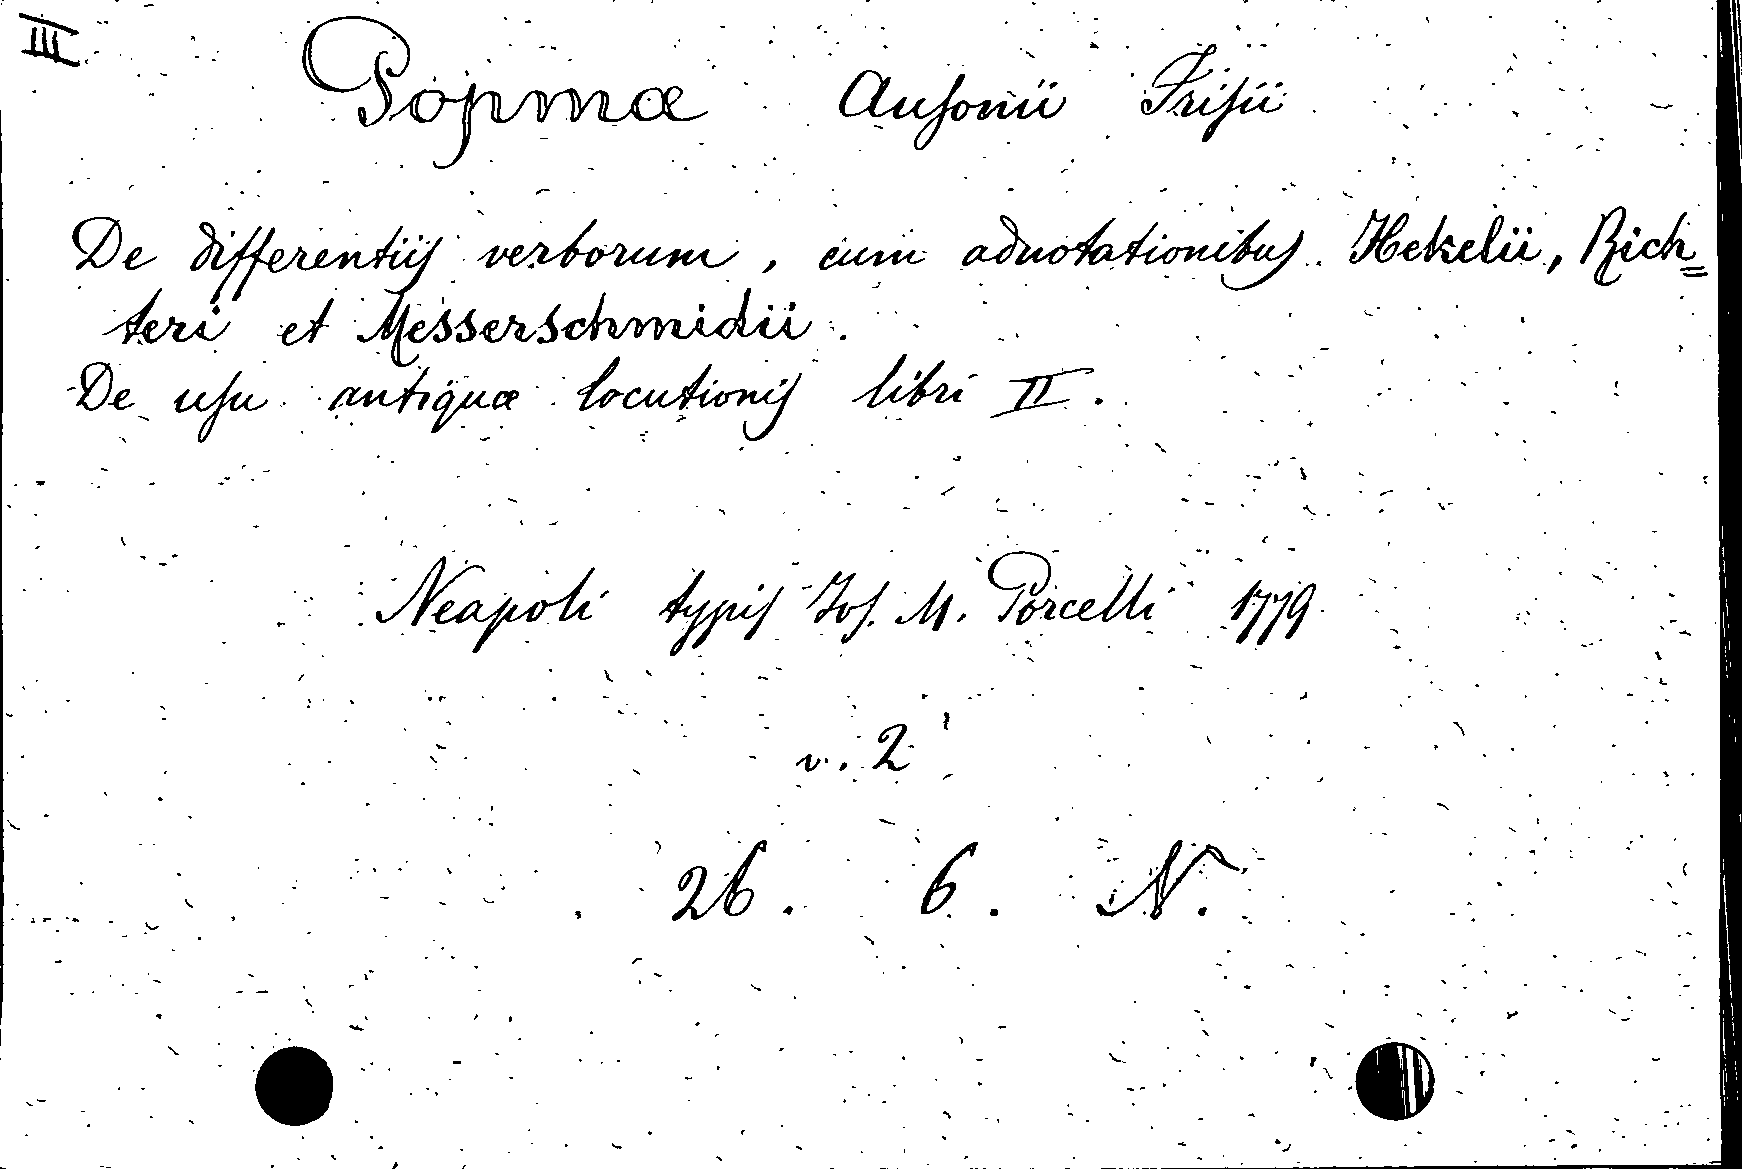 III
Popmæ Ausonii Frisii
De differentiis verborum, cum adnotationibus Hekelii, Rich=
teri et Messerschmidii.
De usu antiquæ locutionis libri II.
Neapoli typis Jos. M. Porcelli 1779
v. 2
26. 6. N.